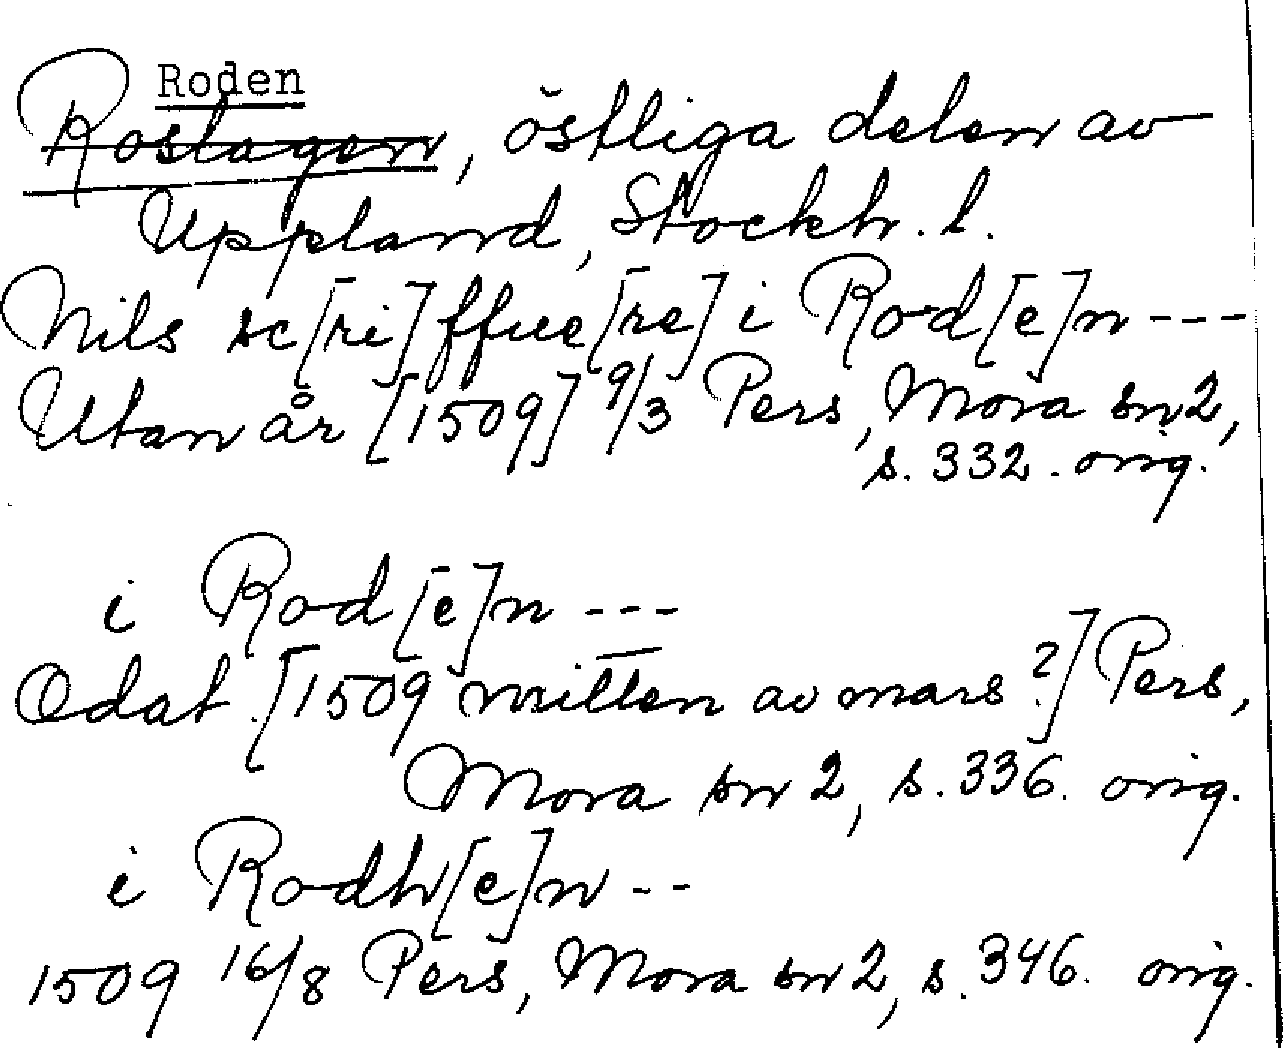 Roden
Roslagen, östliga delen av
Uppland, Stockh. l.
Nils sc[ri]ffue[re] i Rod[e]n ---
Utan år [1509] 9/3 Pers, Mora sn 2,
s. 332. orig.
i Rod[e]n ---
Odat. [1509 mitten av mars?] Pers,
Mora sn 2, s. 336. orig.
i Rodh[e]n --
1509 16/8 Pers, Mora sn 2, s. 346. orig.